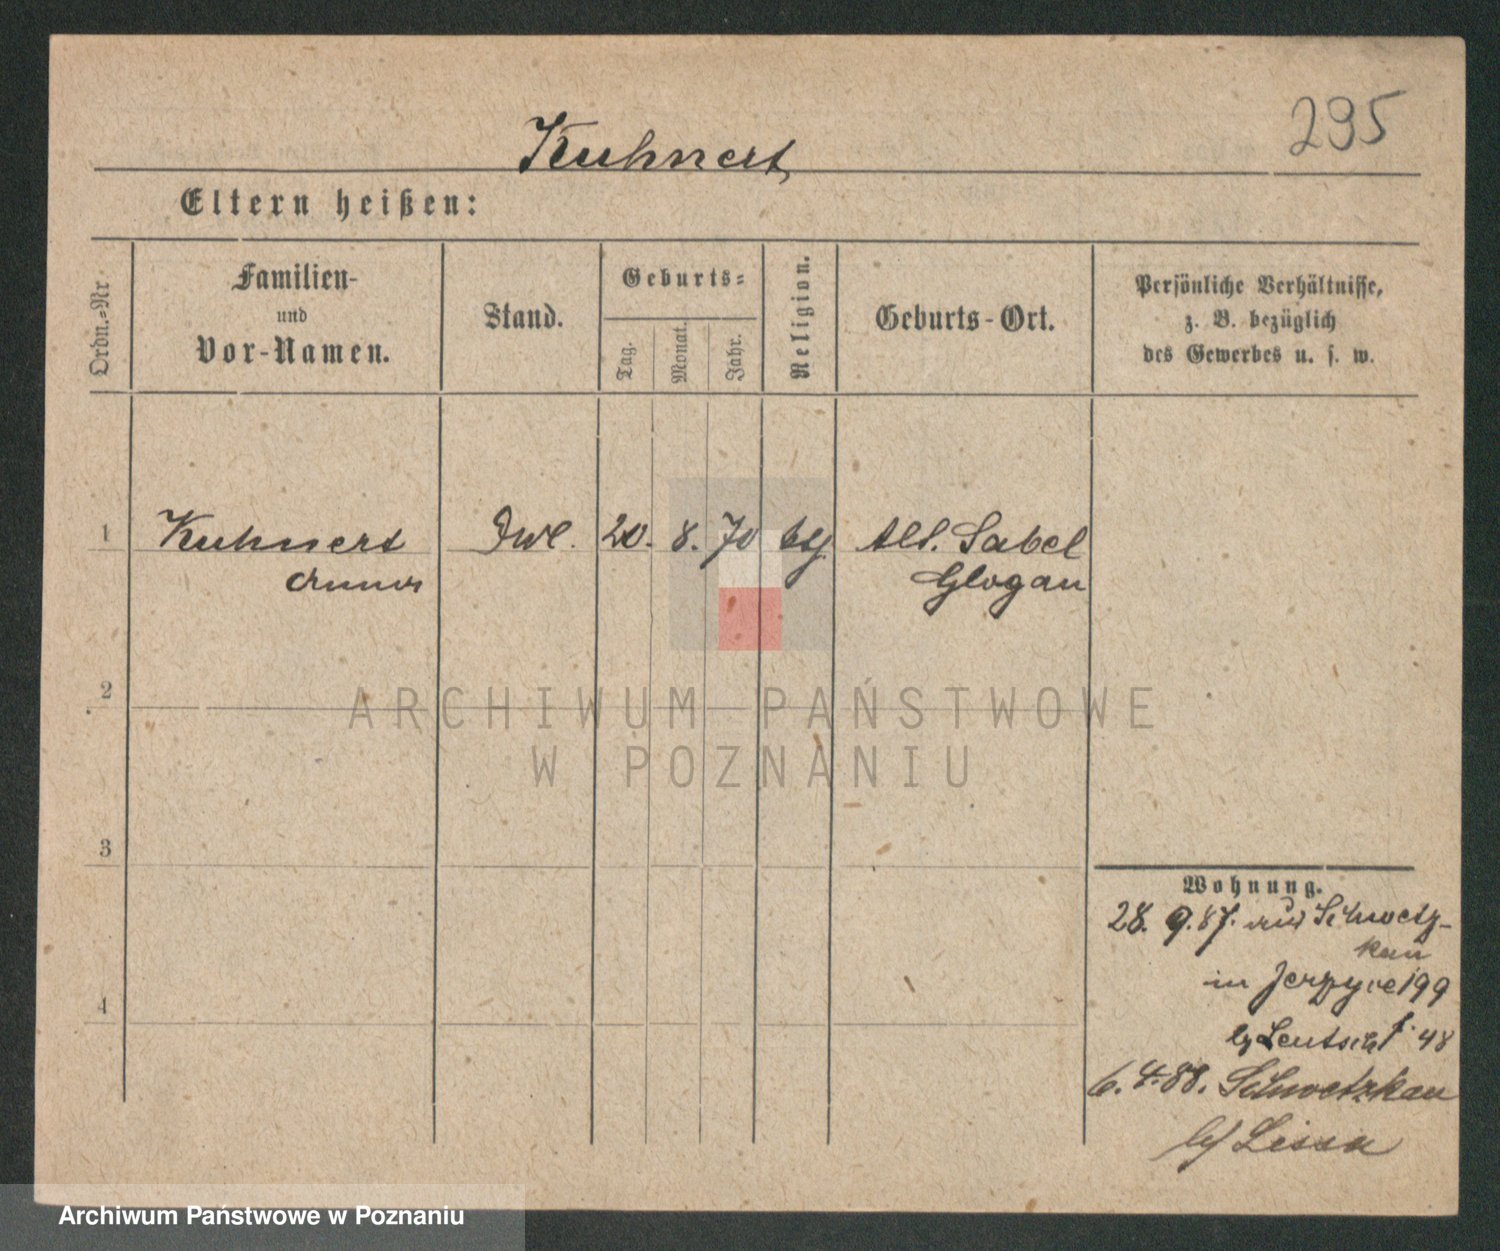 295
Kuhnert
Eltern heißen:
Ordn.=Nr
Familien-
und
Vor-Namen.
Stand.
Geburts=
Tag.
Monat.
Jahr.
Religion.
Geburts-Ort.
Persönliche Verhältnisse,
z. B. bezüglich
des Gewerbes u. s. w.
1
Kuhnert
Anna
20. 8. 70
Alt. Sabel
Glogau
2
ARCHIWUM PAŃSTWOWE
W POZNANIU
3
Wohnung.
28. 9. 87. aus Schwetz-
kau
in Jerzyce 199
4
48
6. 4. 88. Schwetzkau
b/ Lissa
Archiwum Państwowe w Poznaniu